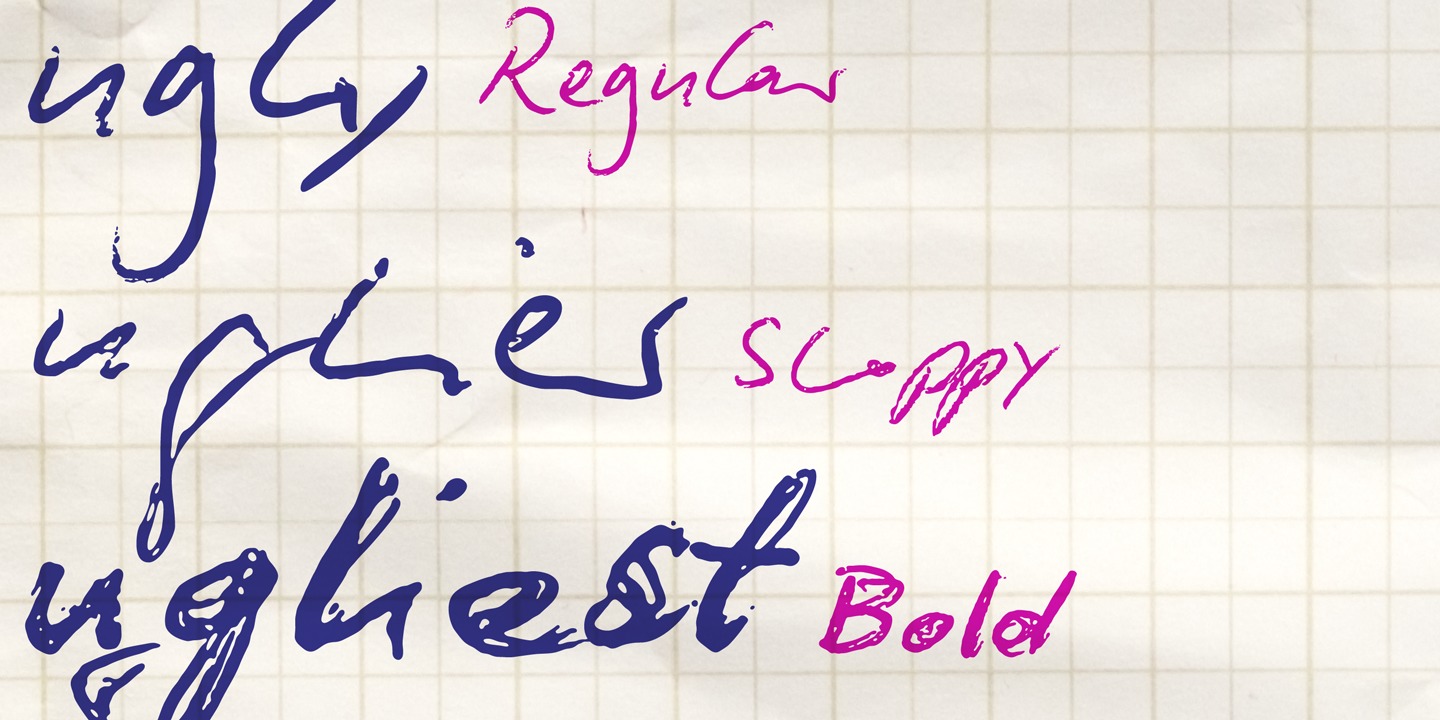 ugly Regular
uglier Sloppy
ugliest Bold